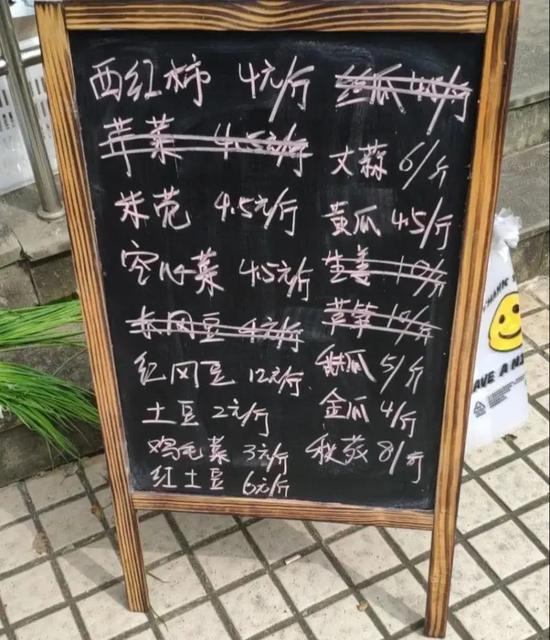 西红柿 4元/斤
4.5元/斤
米苋 4.5元/斤
空心菜 4.5元/斤
冈豆 4元/斤
红冈豆 12元/斤
土豆 2元/斤
鸡毛菜 3元/斤
红土豆 6元/斤
丝瓜
大蒜 6/斤
黄瓜 4.5/斤
生姜 10/斤
甜瓜 5/斤
金瓜 4/斤
秋葵 8/斤
THANK
AVE A